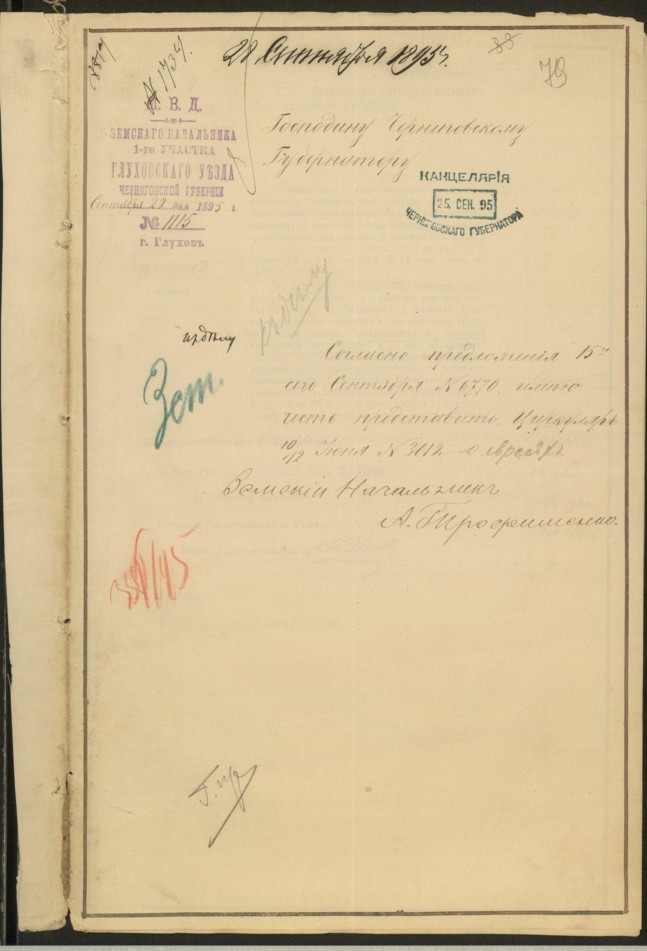 28 Сентября 1895 г.
79
№ 1734
М. В. Д.
ЗЕМСКАГО НАЧАЛЬНИКА
1-го УЧАСТКА
ГЛУХОВСКАГО УѢЗДА
ЧЕРНИГОВСКОЙ ГУБЕРНІИ
Сентября 22 дня 1895 г.
№ 1115
г. Глуховъ
Господину Черниговскому
Губернатору
КАНЦЕЛЯРІЯ
25. СЕН. 95
ЧЕРНИГОВСКАГО ГУБЕРНАТОРА
къ дѣлу
къ дѣлу
Зем.
Согласно предложенія 15
сего Сентября № 6770, имѣю
честь представить циркуляръ
10/12 Іюня № 3012 о евреяхъ.
Земскій Начальникъ
А. Трофименко.